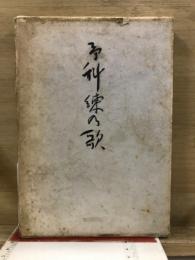 予科練の歌